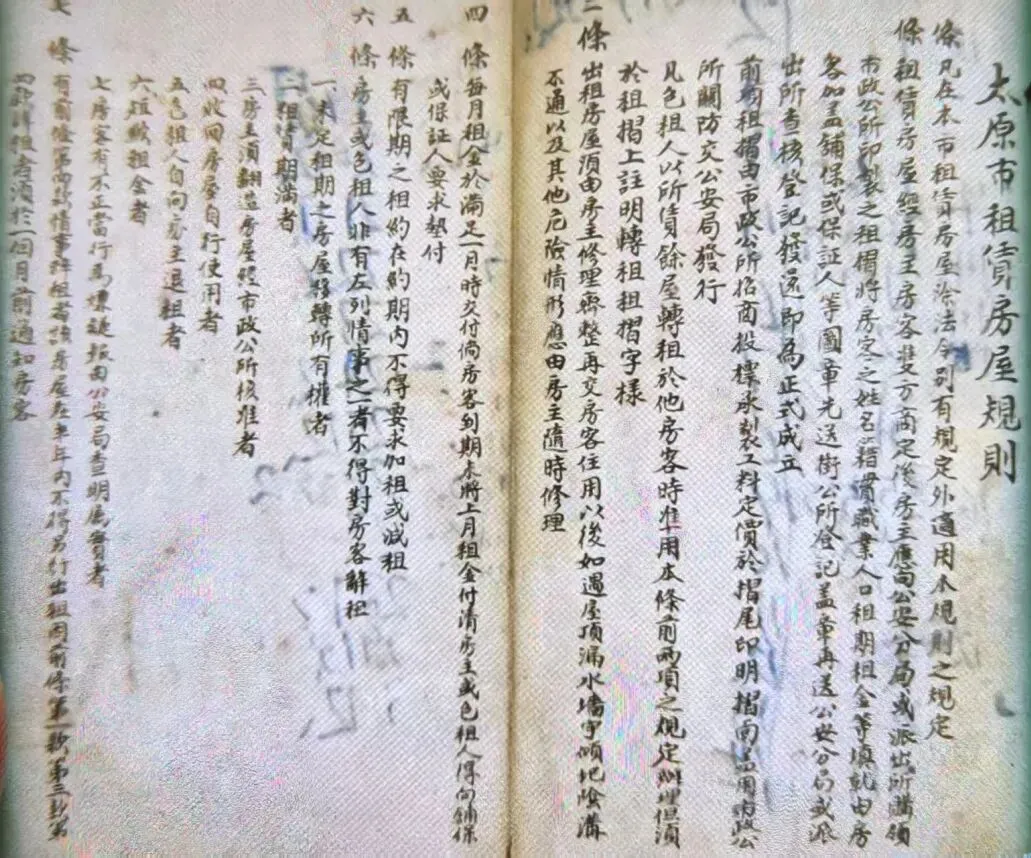 太原市租賃房屋規則
條凡在本市租賃房屋除法令別有規定外適用本規則之規定
條租賃房屋經房主房客雙方商定後房主應向公安分局或派出所購領
市政公所印製之租摺將房客之姓名籍貫職業人口租期租金等填就由房
客加盖鋪保或保証人等圖章先送街公所登記盖章再送公安分局或派
出所查核登記發還即為正式成立
前項租摺由市政公所招商投標承製工料定價於摺尾印明摺面盖用市政公
所關防交公安局發行
凡包租人以所賃餘屋轉租於他房客時准用本條前兩項之規定辦理但須
於租摺上註明轉租租摺字樣
條出租房屋須由房主修理齊整再交房客住用以後如遇屋頂漏水墻宇傾圮陰溝
不通以及其他危險情形應由房主隨時修理
四條每月租金於滿足一月時交付倘房客到期未將上月租金付清房主或包租人得向鋪保
或保証人要求墊付
五條有限期之租約在約期內不得要求加租或減租
六條房主或包租人非有左列情事之一者不得對房客解租
一未定租期之房屋移轉所有權者
二租賃期滿者
三房主須翻造房屋經市政公所核准者
四收回房屋自行使用者
五包租人自向房主退租者
六短欠租金者
七房客有不正當行為嫌疑報由公安局查明屬實者
七條有前條第四款情事解租者該房屋在半年內不得另行出租因前條第一款第三款第
四款解租者須於一個月前通知房客